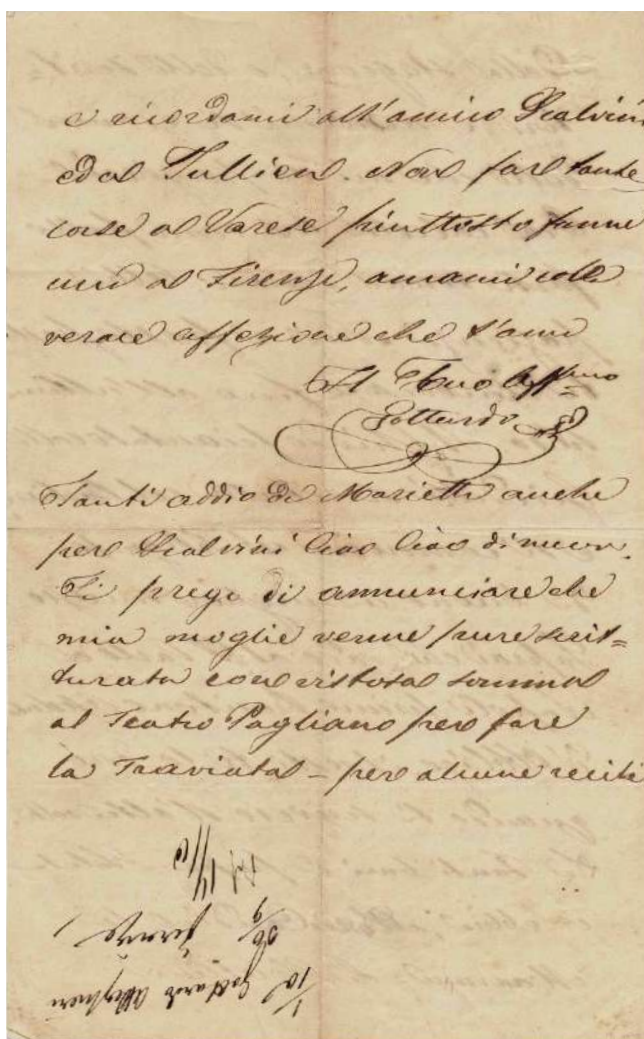 e ricordami all'amico Scalvini
ed a Jullien. Non fare tante
corse a Varese piuttosto fanne
una a Firenze, amami colla
verace affezione che t'ama
Il Tuo Aff.mo
Gottardo
Tanti addio di Marietta anche
per Scalvini Ciao Ciao di nuov.
Ti prego di annunciare che
mia moglie venne pure scrit=
turata con vistosa somma
al Teatro Pagliano per fare
la Traviata - per alcune recite
Gottardo Aldighieri
Firenze